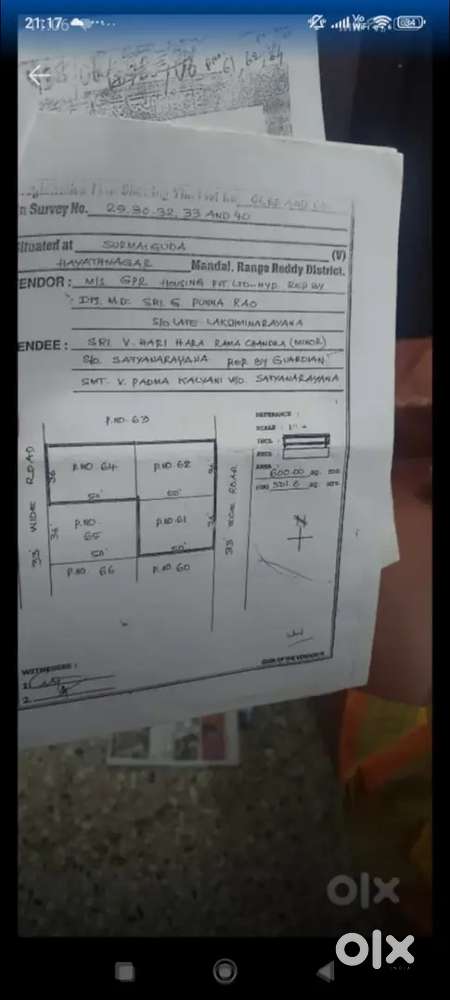 21:17
034
61, 62, 64
In Survey No. 29, 30, 32, 33 AND 40
Situated at SURMAIGUDA (V)
HAYATHNAGAR Mandal, Ranga Reddy District.
VENDOR: M/S GPR HOUSING PVT. LTD-HYD REP BY
ITS M.D. SRI G PUNNA RAO
S/O LATE LAKSHMINARAYANA
VENDEE: SRI V. HARI HARA RAMA CHANDRA (MINOR)
S/O. SATYANARAYANA REP BY GUARDIAN
SMT. V. PADMA KALYANI W/O SATYANARAYANA
P.NO. 63
REFERENCE:
SCALE: 1"=
INCL:
EXCL:
AREA:
600.00 SQ. YDS
(OR) 501.6 SQ. MTS.
33' WIDE ROAD
36'
P.NO. 64
50'
P.NO. 62
50'
36'
33' WIDE ROAD
36'
P.NO. 65
50'
P.NO. 61
50'
36'
P.NO. 66
P.NO. 60
N
WITNESSES:
1.
2.
SIGN OF THE VENDOR
olx
olx
INDIA